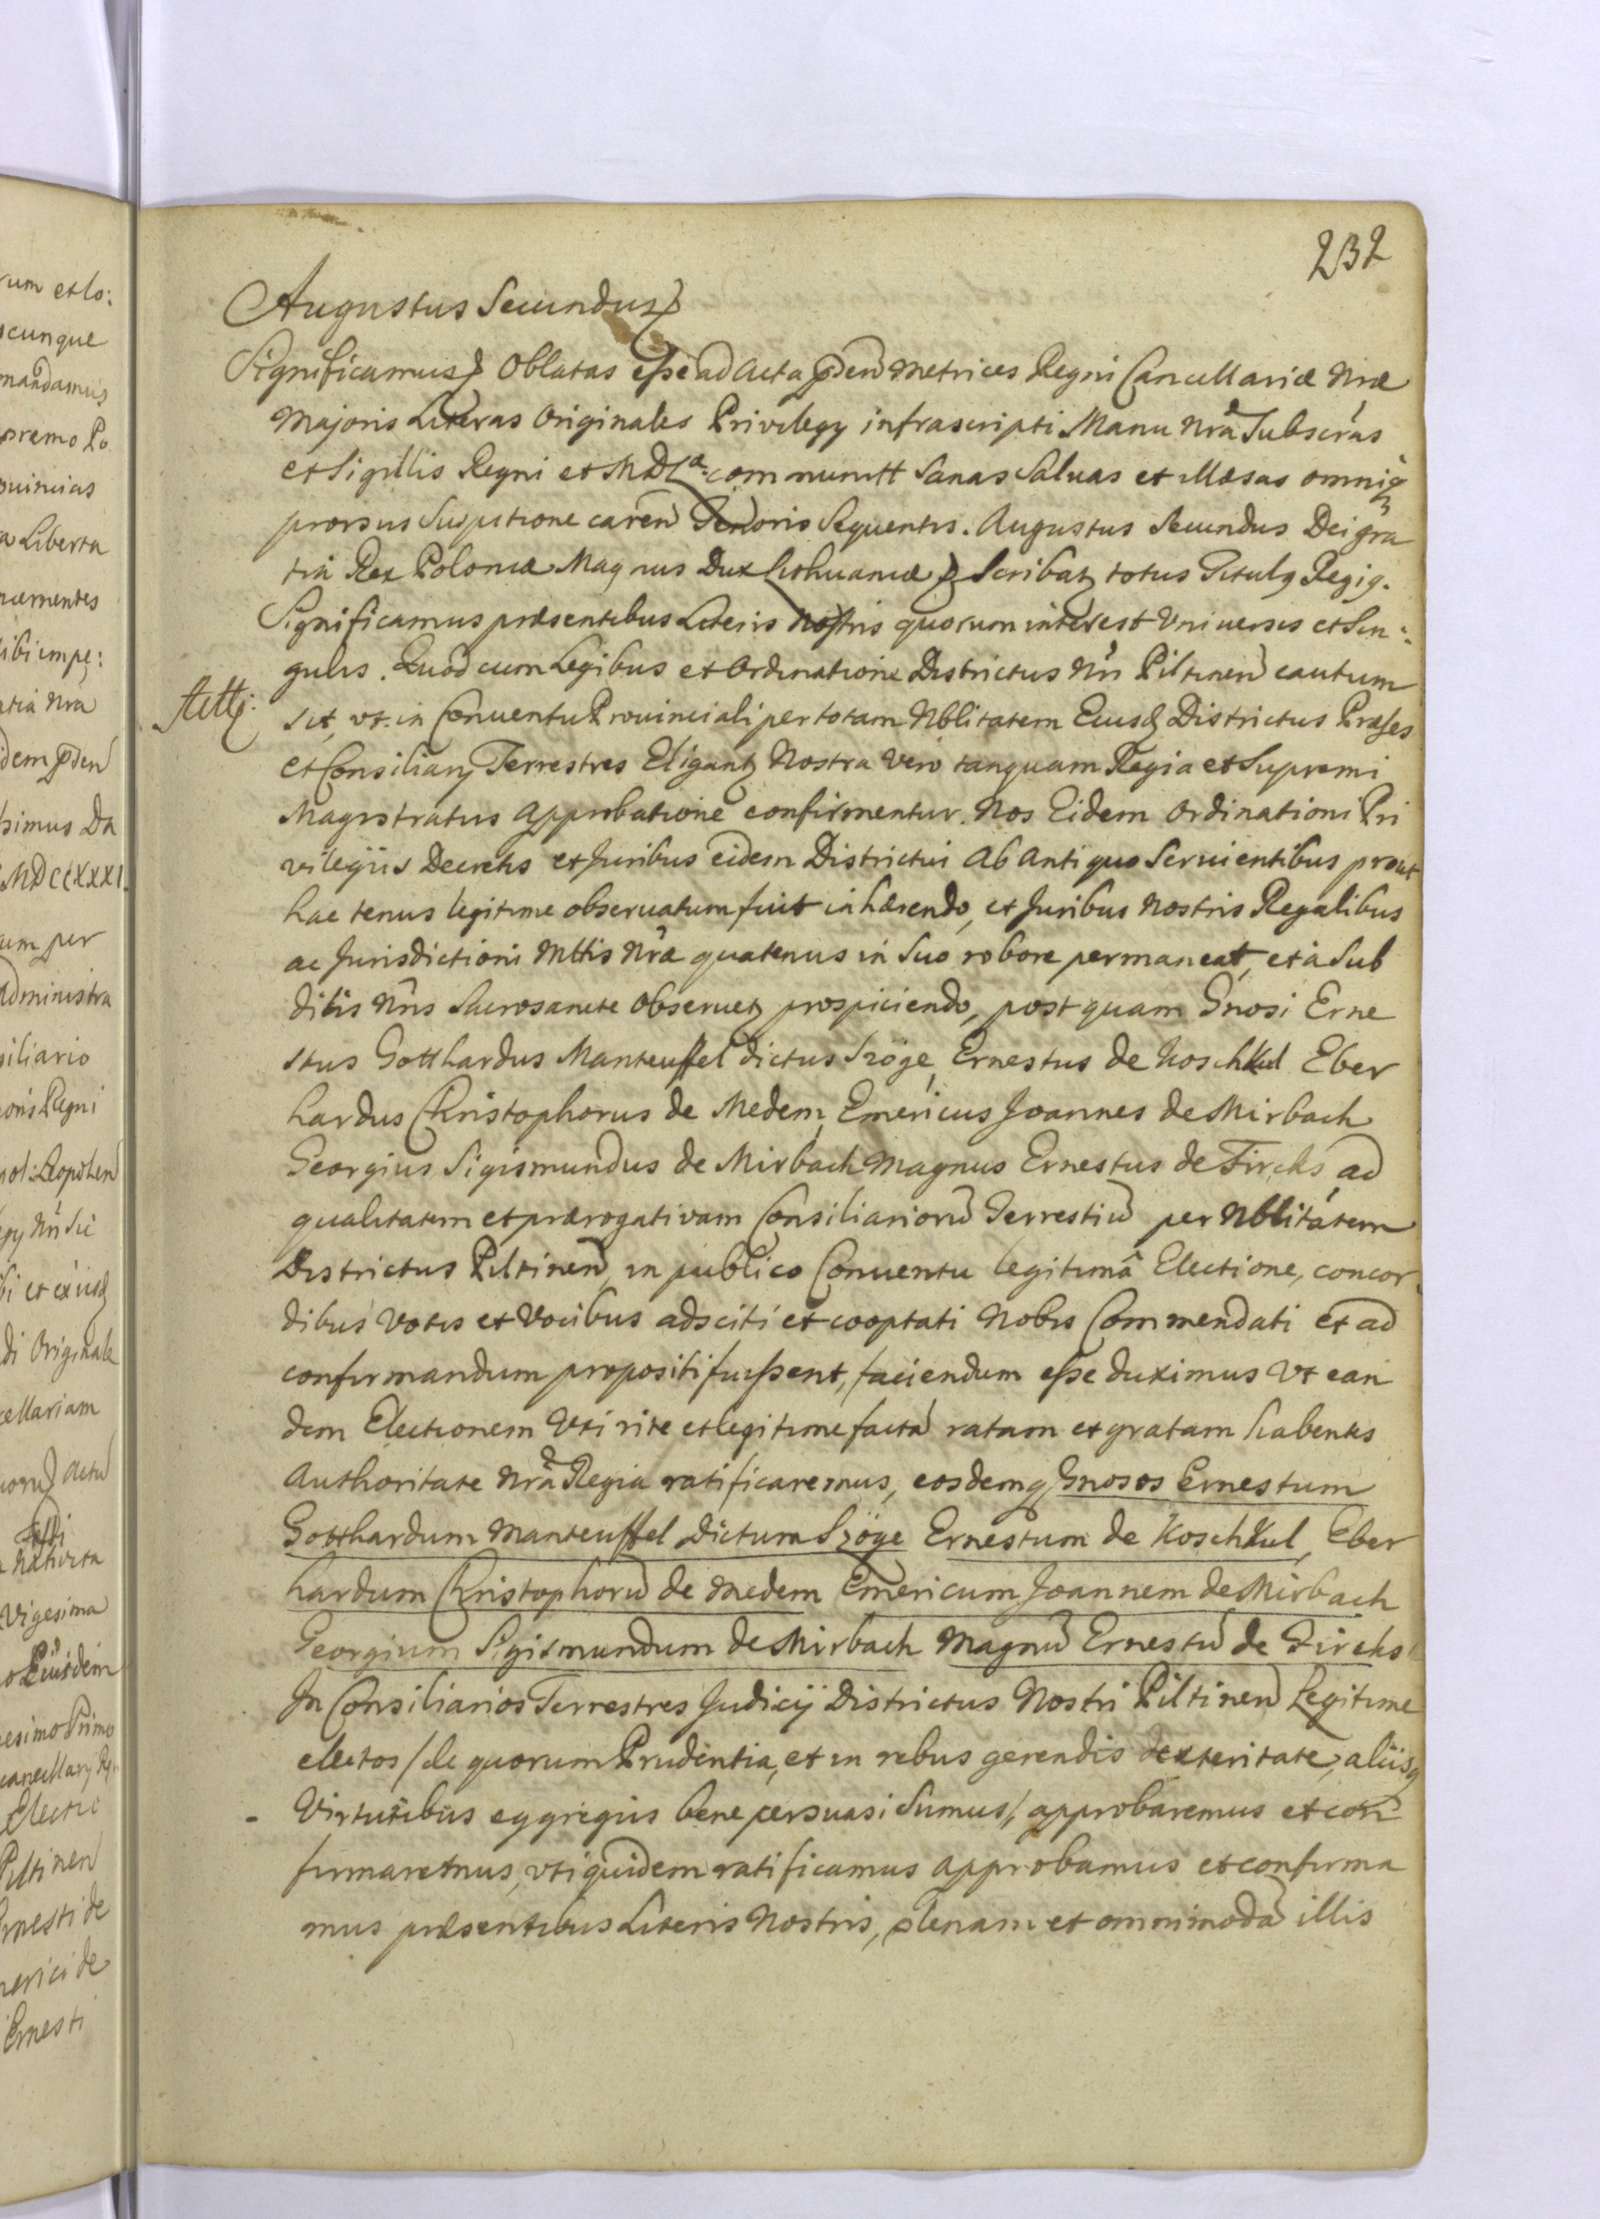 232
Augustus Secundus
Significamus Oblatas esse ad Acta pñen Metrices Regni Cancellariæ Nræ
Majoris Literas Originales Privilegy infrascripti Manu Nrâ Subscras
et Sigillis Regni et MDL communitt Sanas Saluas et illæsas omniq
prorsus Suspitione caren Tenoris Sequentis. Augustus Secundus Dei gra
tia Rex Poloniæ Magnus Dux Lithuaniæ Scribatz totus Titulg Regig.
Significamus præsentibus Literis Nostris quorum interest Vniuersis et Sin:
gulis. Quod cum Legibus et Ordinatione Districtus Nri Piltinen cautum
sit, vt in Conuentu Prouinciali per totam Nblitatem Eiusd Districtus Præses
et Consiliary Terrestres Eligantz Nostra vero tanquam Regia et Supremi
Magistratus Approbatione confirmentur. Nos Eidem Ordinationi Pri
vilegijs Decretis et Juribus eidem Districtui Ab Antiquo Seruientibus prout
hac tenus legitime obseruatum fuit inhærendo, et Juribus Nostris Regalibus
ac Jurisdictioni Mttis Nræ quatenus in Suo robore permaneat, et à Sub
ditis Nris Sacrosancte Obseruetz prospiciendo, post quam Gnosi Erne
stus Gotthardus Manteuffel dictus Szöge, Ernestus de Koschkul Eber
hardus Christophorus de Medem, Emericus Joannes de Mirbach
Georgius Sigismundus de Mirbach Magnus Ernestus de Fircks ad
qualitatem et prærogativam Consiliarioru Terrestriu per Nblitatem
Districtus Piltinen, in publico Conuentu legitimâ Electione, concor
dibus Votis et Vocibus adsciti et cooptati Nobis Commendati et ad
confirmandum propositi fuissent, faciendum esse duximus Vt ean
dem Electionem Vti rite et legitime facta ratam et gratam habentes
Authoritate Nrâ Regia ratificaremus, eosdemq Gnosos Ernestum
Gotthardum Manteuffel Dictum Szöge Ernestum de Koschkul, Eber
hardum Christophoru de Medem Emericum Joannem de Mirbach
Georgium Sigismundum de Mirbach Magnu Ernestu de Fircks
In Consiliarios Terrestres Judicij Districtus Nostri Piltinen Legitime
electos /de quorum Prudentia, et in rebus gerendis dexteritate, alijsq
Virtutibus eggregijs bene persuasi Sumus/, approbaremus et con
firmaremus, vti quidem ratificamus approbamus et confirma
mus præsentibus Literis Nostris, plenam et omnimoda illis